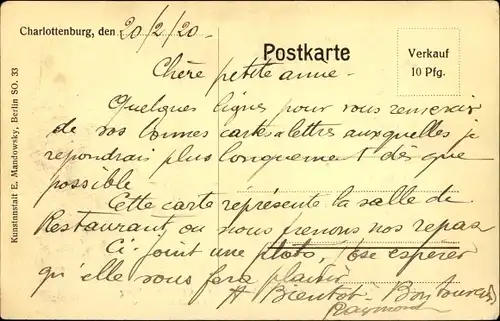 Charlottenburg, den 20/2/20.-
Postkarte
Verkauf
10 Pfg.
Kunstinstalt E. Mandowsky, Berlin SO. 33
Chère petite amie -
Quelques lignes pour vous remercier
de vos bonnes cartes & lettres auxquelles je
repondrais plus longuement dès que
possible
Cette carte représente la salle de
Restaurant, ou nous prenons nos repas
Ci-joint une photo, j'ose espérer
qu'elle vous fera plaisir
A Bientôt - Bon
Raymond